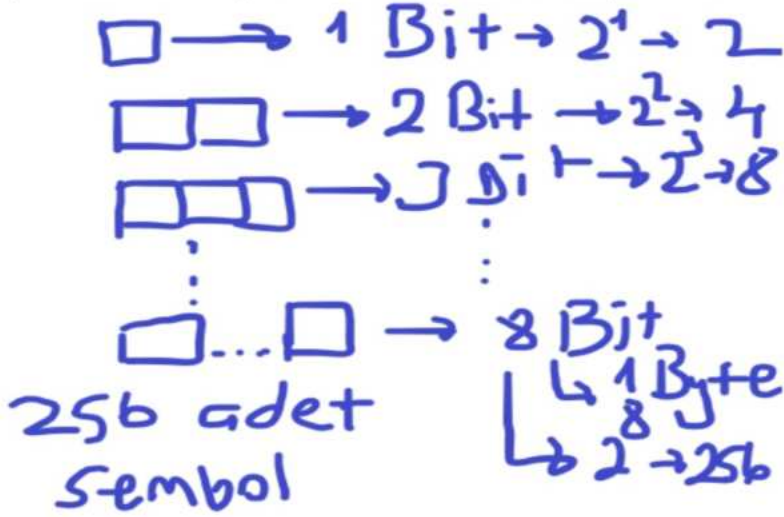 1 Bit → 2¹ → 2
2 Bit → 2² → 4
3 Bit → 2³ → 8
8 Bit
↳ 1 Byte
↳ 2⁸ → 256
256 adet
sembol